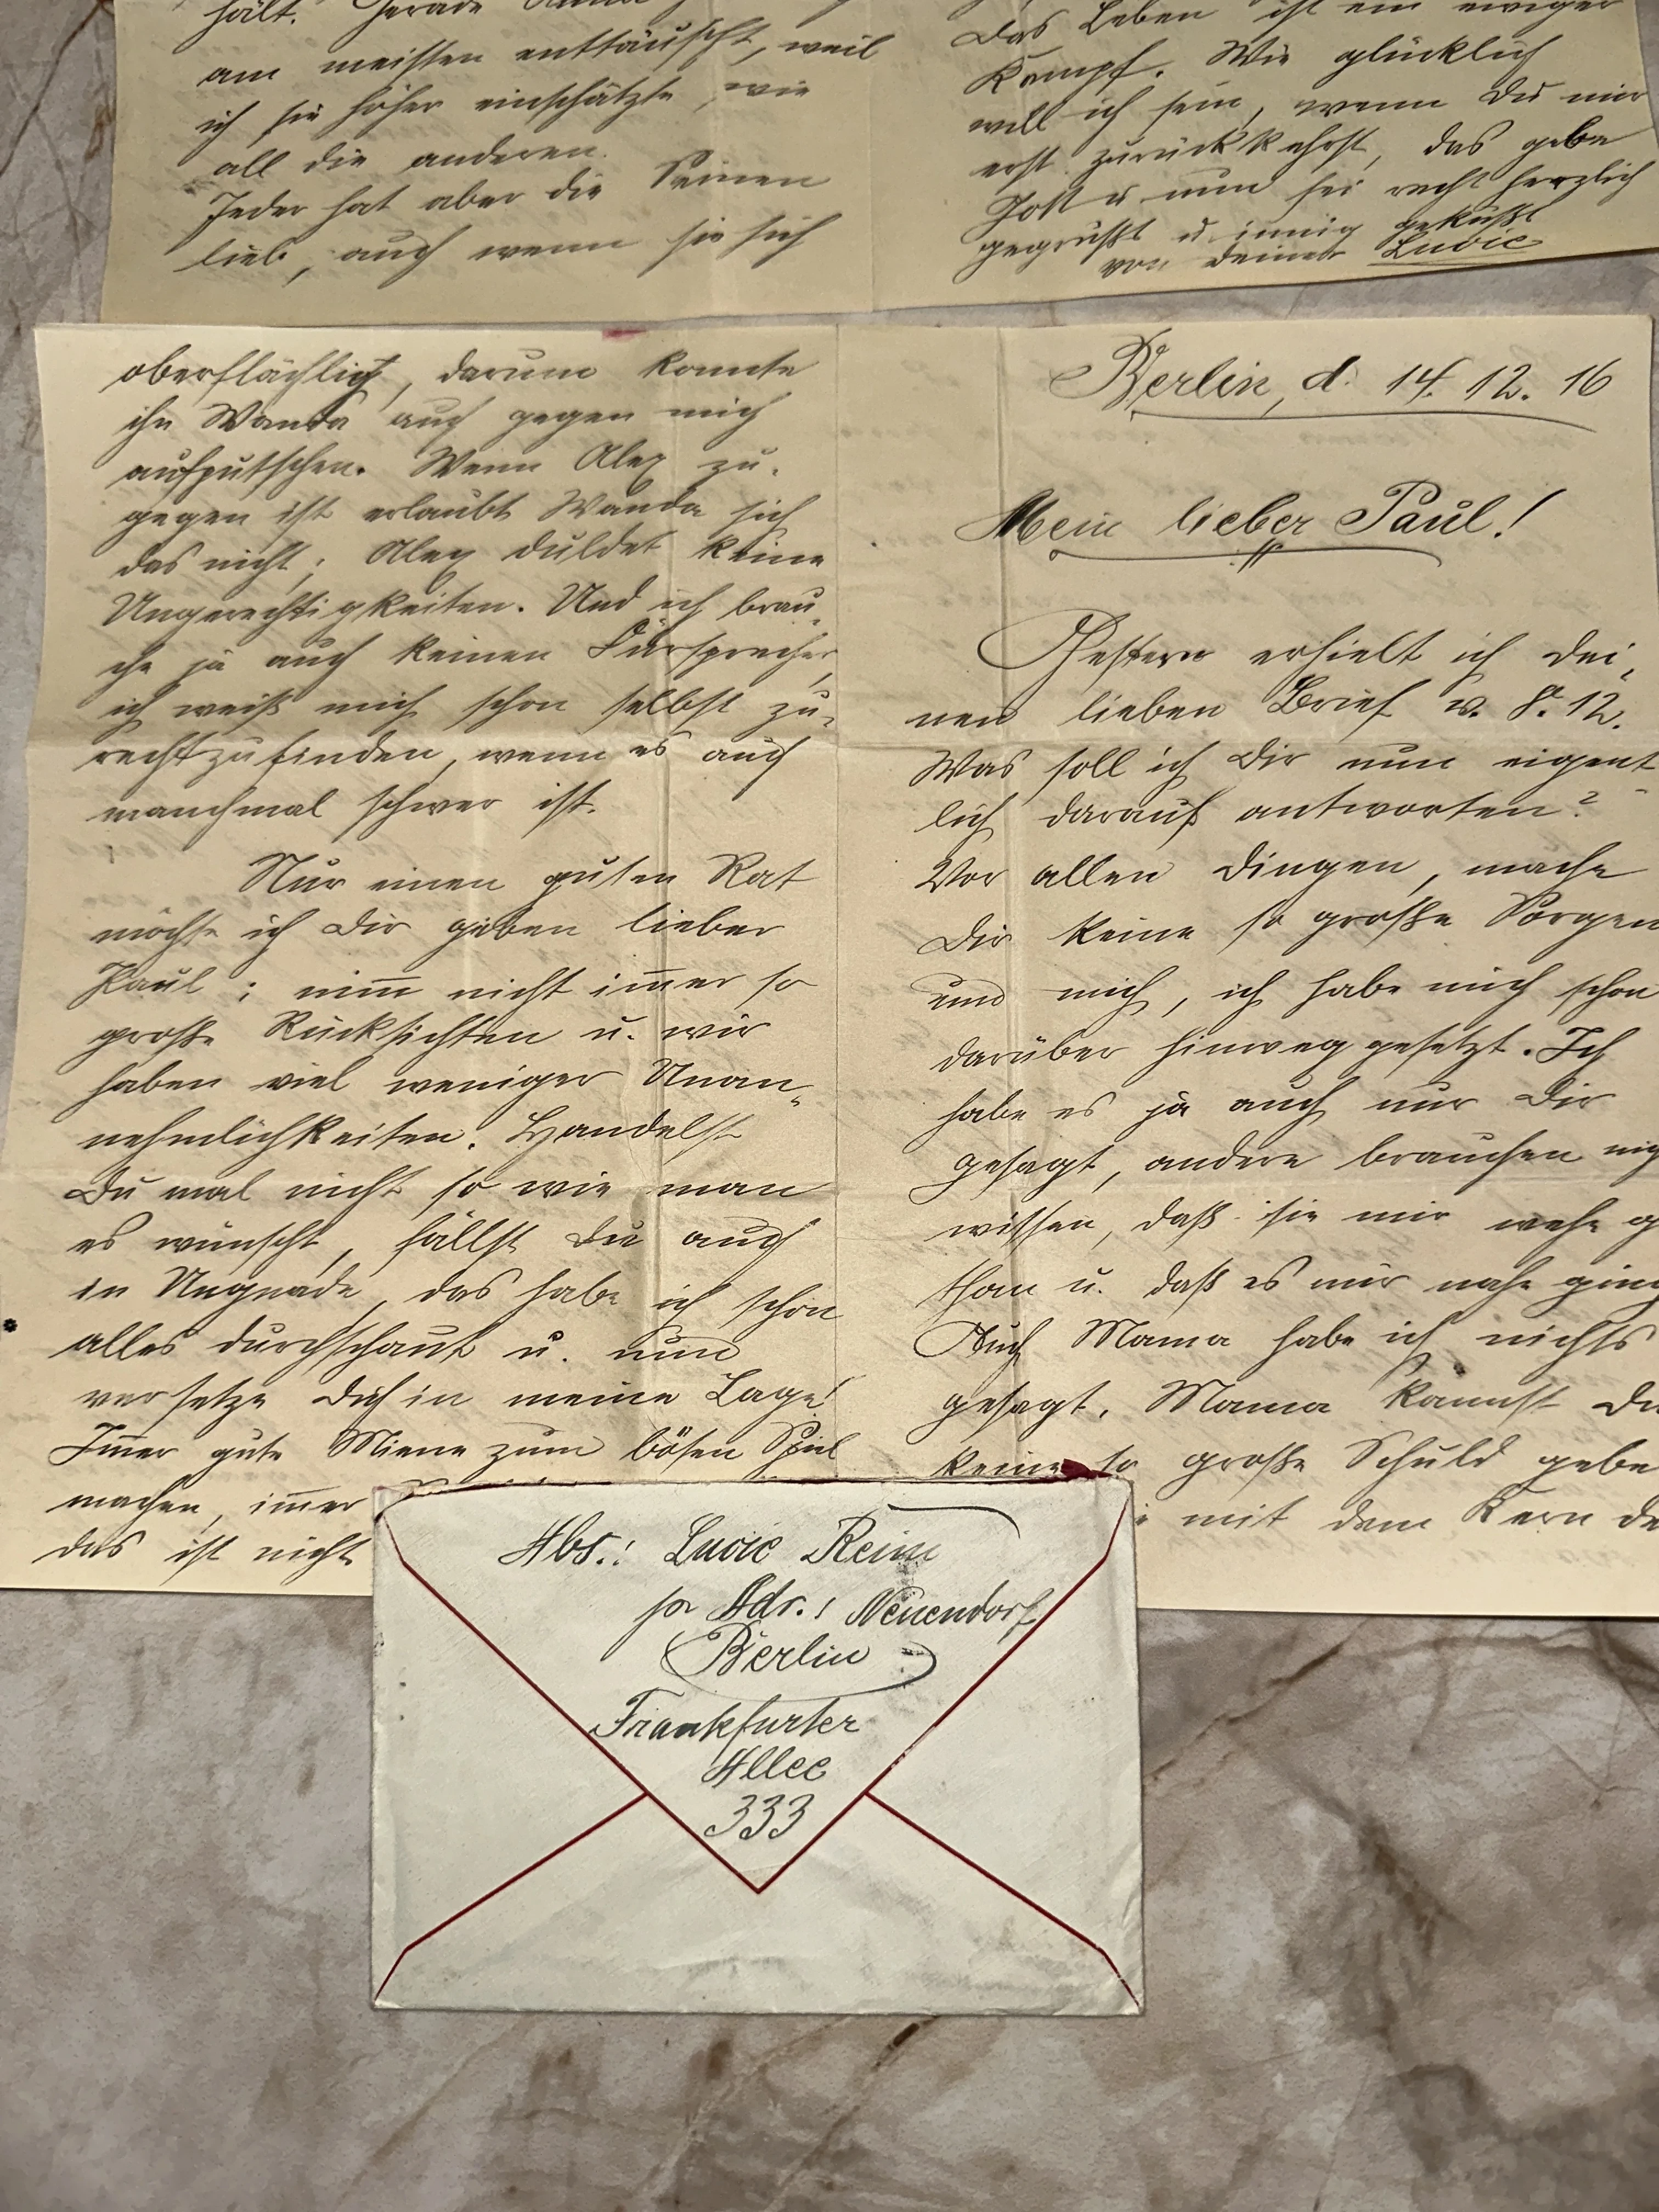 hält. Gerade
am meisten enttäuscht, weil
ich sie höher einschätzte, wie
all die anderen.
Jeder hat aber die Seinen
lieb, auch wenn sie sich
Das Leben ist ein ewiger
Kampf. Wie glücklich
will ich sein, wenn Du mir
erst zurückkehrst, das gebe
Gott u. nun sei recht herzlich
gegrüßt u. innig geküßt
von Deiner Lucie
oberflächlich, darum konnte
ihn Wanda auch gegen mich
aufputschen. Wenn Alex zu-
gegen ist erlaubt Wanda sich
das nicht; Alex duldet keine
Ungerechtigkeiten. Und ich brau-
che ja auch keinen Fürsprecher,
ich weiß mich schon selbst zu-
rechtzufinden, wenn es auch
manchmal schwer ist.
Nur einen guten Rat
möchte ich Dir geben lieber
Paul; nim̅ nicht im̅er so
große Rücksichten u. wir
haben viel weniger Unan-
nehmlichkeiten. Handelst
Du mal nicht so wie man
es wünscht, fällst Du auch
in Ungnade, das habe ich schon
alles durchschaut u. nun
versetze Dich in meine Lage!
Im̅er gute Miene zum bösen Spiel
machen, im̅er
das ist nicht
Berlin, d. 14. 12. 16
Mein lieber Paul!
Gestern erhielt ich Dei-
nen lieben Brief v. 8. 12.
Was soll ich Dir nun eigent-
lich darauf antworten?
Vor allen Dingen, mache
Dir keine so große Sorgen
um mich, ich habe mich schon
darüber hinweg gesetzt. Ich
habe es ja auch nur Dir
gesagt, andere brauchen nich
wissen, daß sie mir wehe g
than u. daß es mir nahe ging
Auch Mama habe ich nichts
gesagt. Mama kannst Du
keine so große Schuld gebe
mit dem Kern de
Abs.: Lucie Reim
pr Adr.: Neuendorf
Berlin
Frankfurter
Allee
333